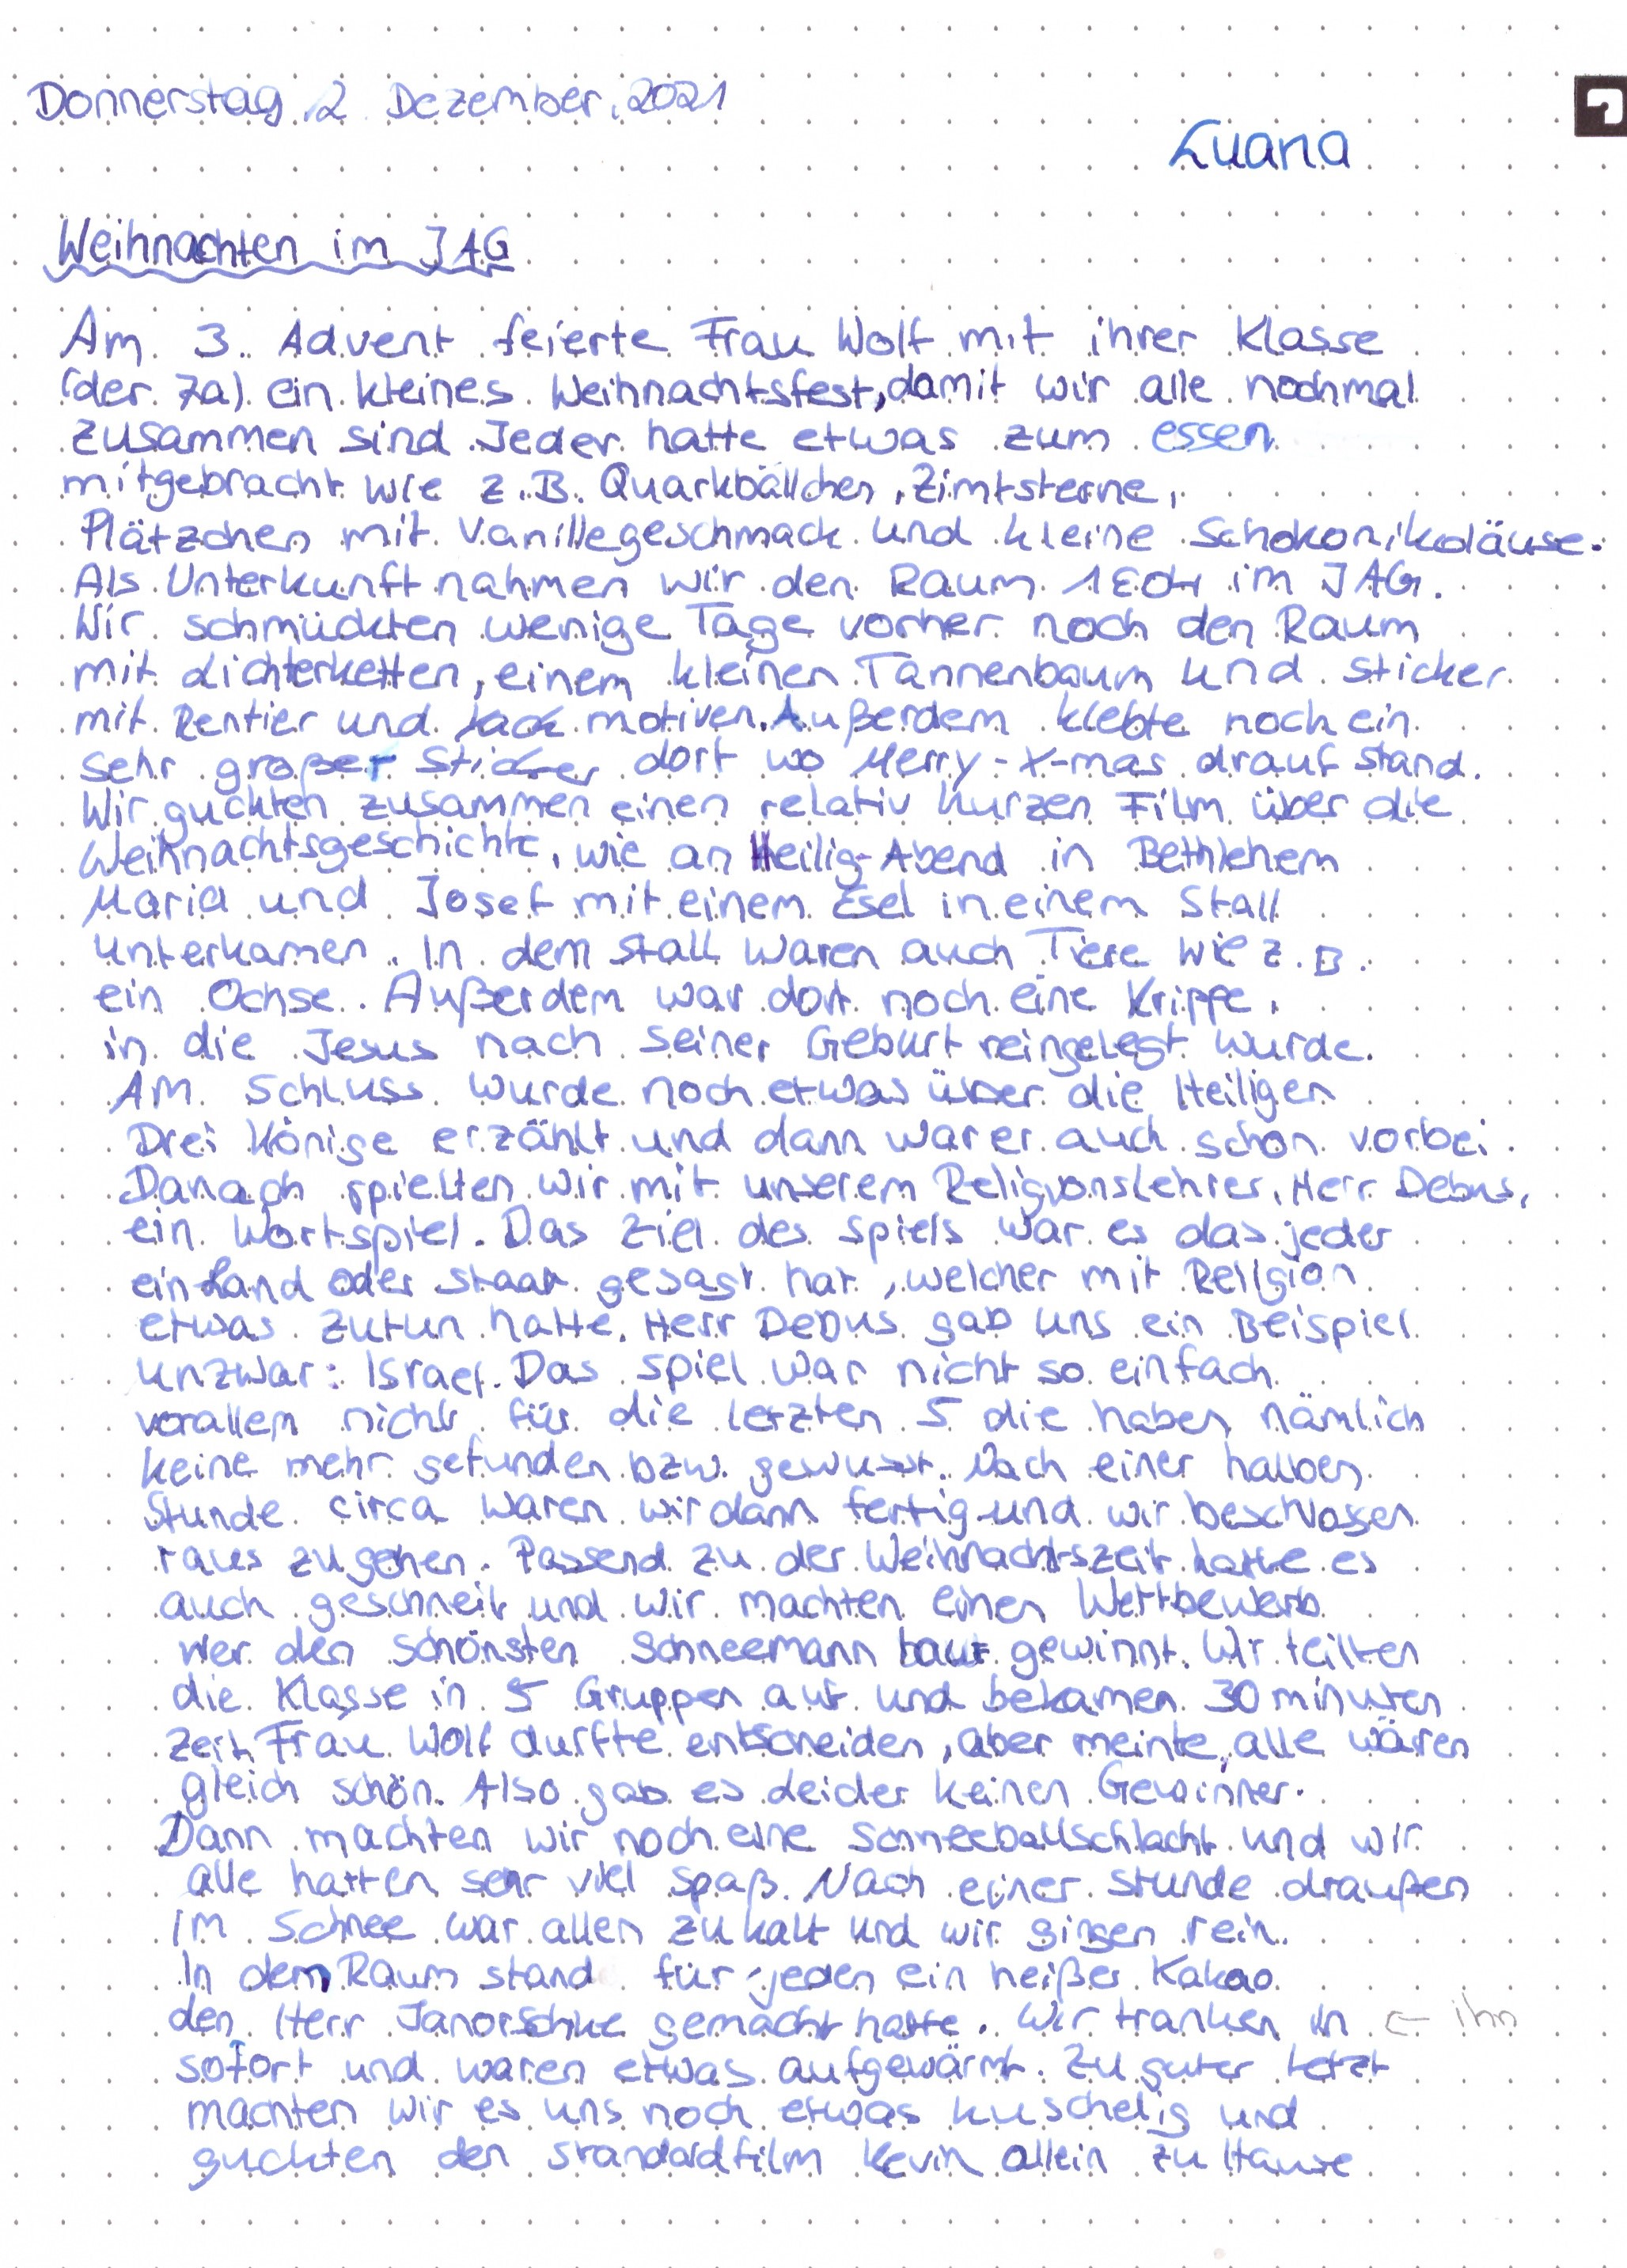 Donnerstag, 2 Dezember, 2021
Luana
Weihnachten im JAG
Am 3. Advent feierte Frau Wolf mit ihrer Klasse
(der 7a) ein kleines Weihnachtsfest, damit wir alle nochmal
zusammen sind. Jeder hatte etwas zum essen
mitgebracht wie z.B. Quarkbällchen, Zimtsterne,
Plätzchen mit Vanillegeschmack und kleine Schokonikoläuse.
Als Unterkunft nahmen wir den Raum 1E04 im JAG.
Wir schmückten wenige Tage vorher noch den Raum
mit Lichterketten, einem kleinen Tannenbaum und sticker
mit Rentier und motiven. Außerdem klebte noch ein
sehr großer Sticker dort wo Merry-X-mas drauf stand.
Wir guckten zusammen einen relativ kurzen Film über die
Weihnachtsgeschichte, wie an Heilig-Abend in Bethlehem
Maria und Josef mit einem Esel in einem Stall
unterkamen. In dem Stall waren auch Tiere wie z.B.
ein Ochse. Außerdem war dort noch eine Krippe,
in die Jesus nach seiner Geburt reingelegt wurde.
Am Schluss wurde noch etwas über die Heiligen
Drei Könige erzählt und dann war er auch schon vorbei.
Danach spielten wir mit unserem Religionslehrer, Herr Debus,
ein Wortspiel. Das Ziel des Spiels war es das jeder
ein Land oder Staat gesagt hat, welcher mit Religion
etwas zutun hatte. Herr Debus gab uns ein Beispiel
unzwar: Israel. Das Spiel war nicht so einfach
vorallem nicht für die letzten 5 die haben nämlich
keine mehr gefunden bzw. gewusst. Nach einer halben
Stunde circa waren wir dann fertig und wir beschlossen
raus zugehen. Passend zu der Weihnachtszeit hatte es
auch geschneit und wir machten einen Wettbewerb
wer den schönsten Schneemann baut gewinnt. Wir teilten
die Klasse in 5 Gruppen auf und bekamen 30 minuten
zeit. Frau Wolf durfte entscheiden, aber meinte, alle wären
gleich schön. Also gab es leider keinen Gewinner.
Dann machten wir noch eine Schneeballschlacht und wir
alle hatten sehr viel spaß. Nach einer Stunde draußen
im Schnee war allen zu kalt und wir gingen rein.
In dem Raum stand für jeden ein heißer Kakao
den Herr Janorschke gemacht hatte. Wir tranken in ← ihn
sofort und waren etwas aufgewärmt. Zu guter letzt
machten wir es uns noch etwas kuschelig und
guckten den standardfilm Kevin allein zu Hause